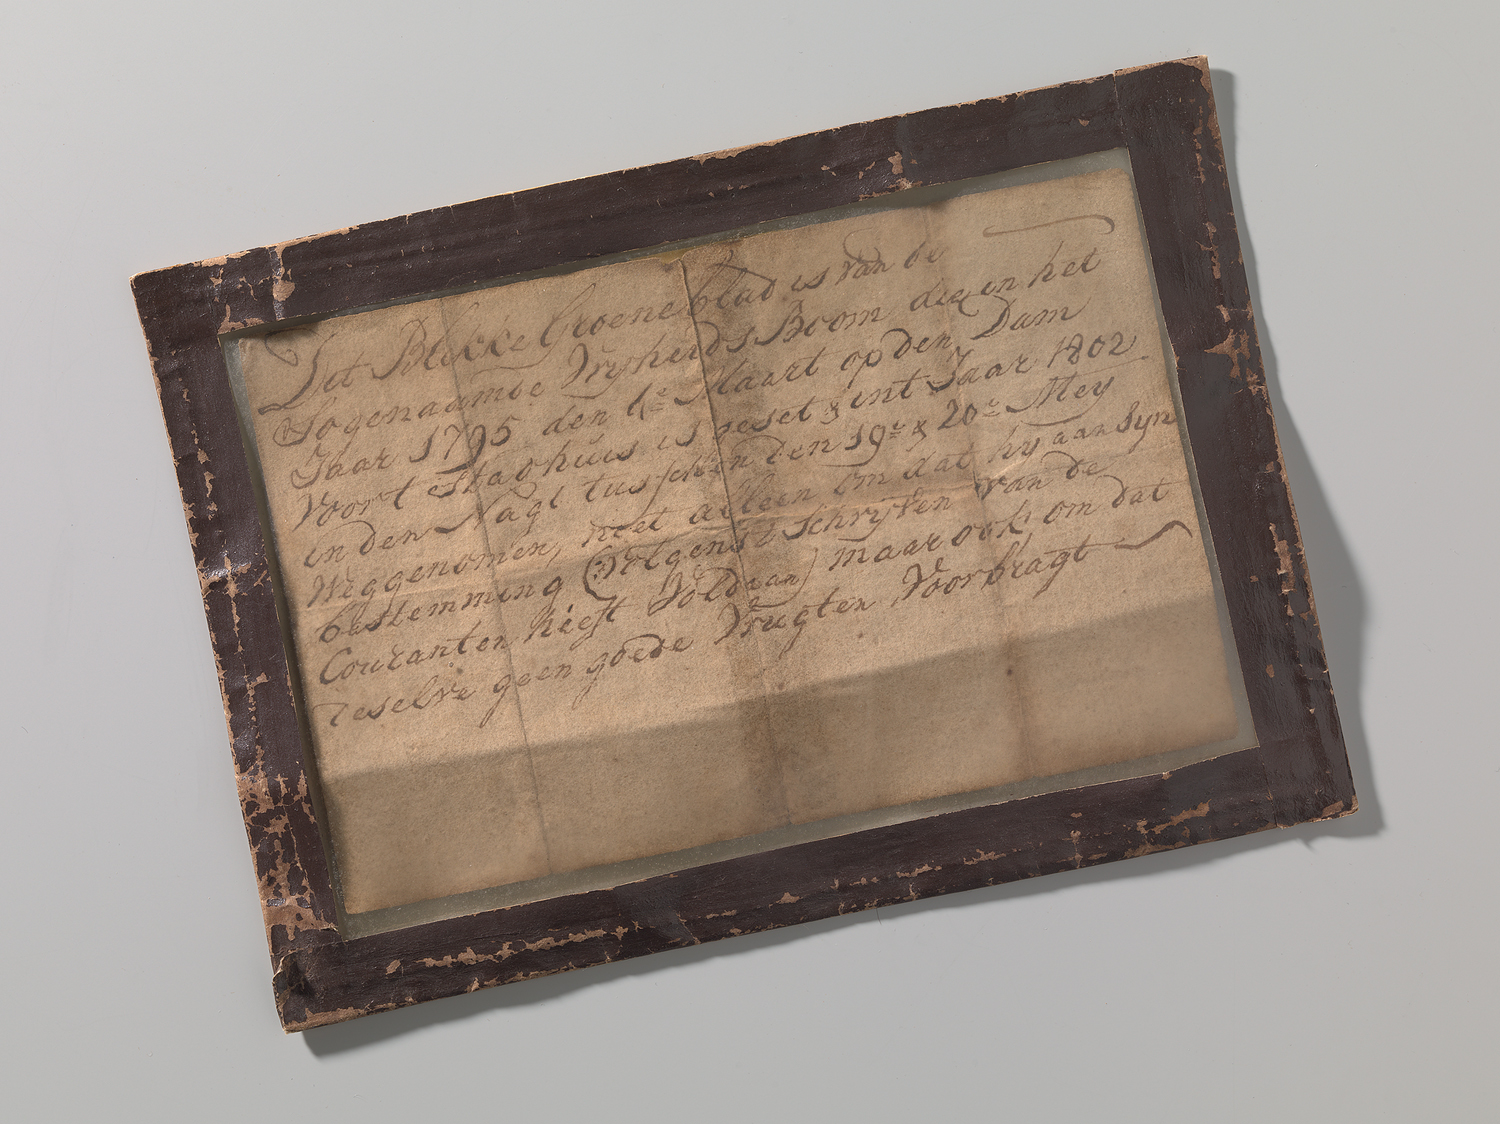 Dit Blikke Groene blad is van de
Sogenaamde Vryheids Boom die in het
Jaar 1795 den 4e Maart op den Dam
voor't Stadhuis is geset & int Jaar 1802
in den Nagt tusschen den 19e & 20e Mey
Weggenomen, niet alleen om dat hy aan Syn
bestemming (volgens't Schryven van de
Couranten heeft Voldaan) maar ook om dat
deselve geen goede Vrugten Voorbragt